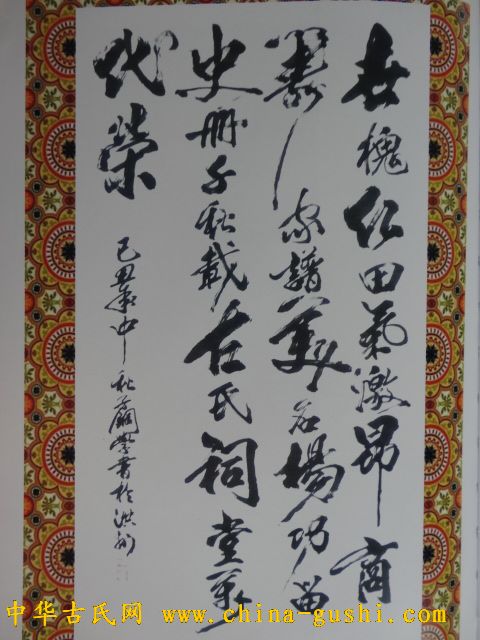 世槐仁田氣激昂商
家譜美名揚功留
史册千秋載古氏祠堂萬
代榮
己丑年中秋學書於洪都
中华古氏网 www.china-gushi.com